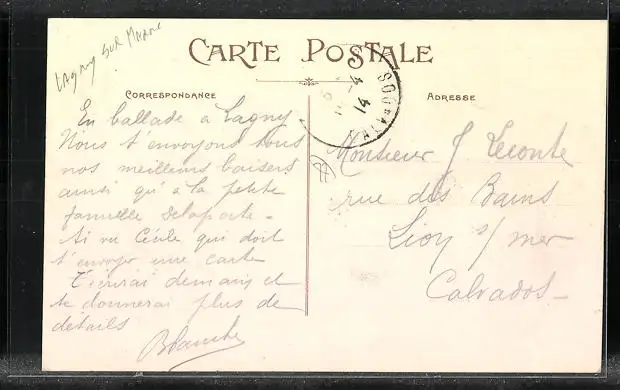 Lagny sur Marne
CARTE POSTALE
CORRESPONDANCE
En ballade à Lagny
Nous t'envoyons tous
nos meilleurs baisers
ainsi qu'à la petite
famille Delaporte -
Ai vu Cécile qui doit
t'envoyer une carte
T'écrirai demain et
te donnerai plus de
détails
Blanche
14
ADRESSE
Monsieur J Leconte
rue des Bains
Lion s/ mer
Calvados -